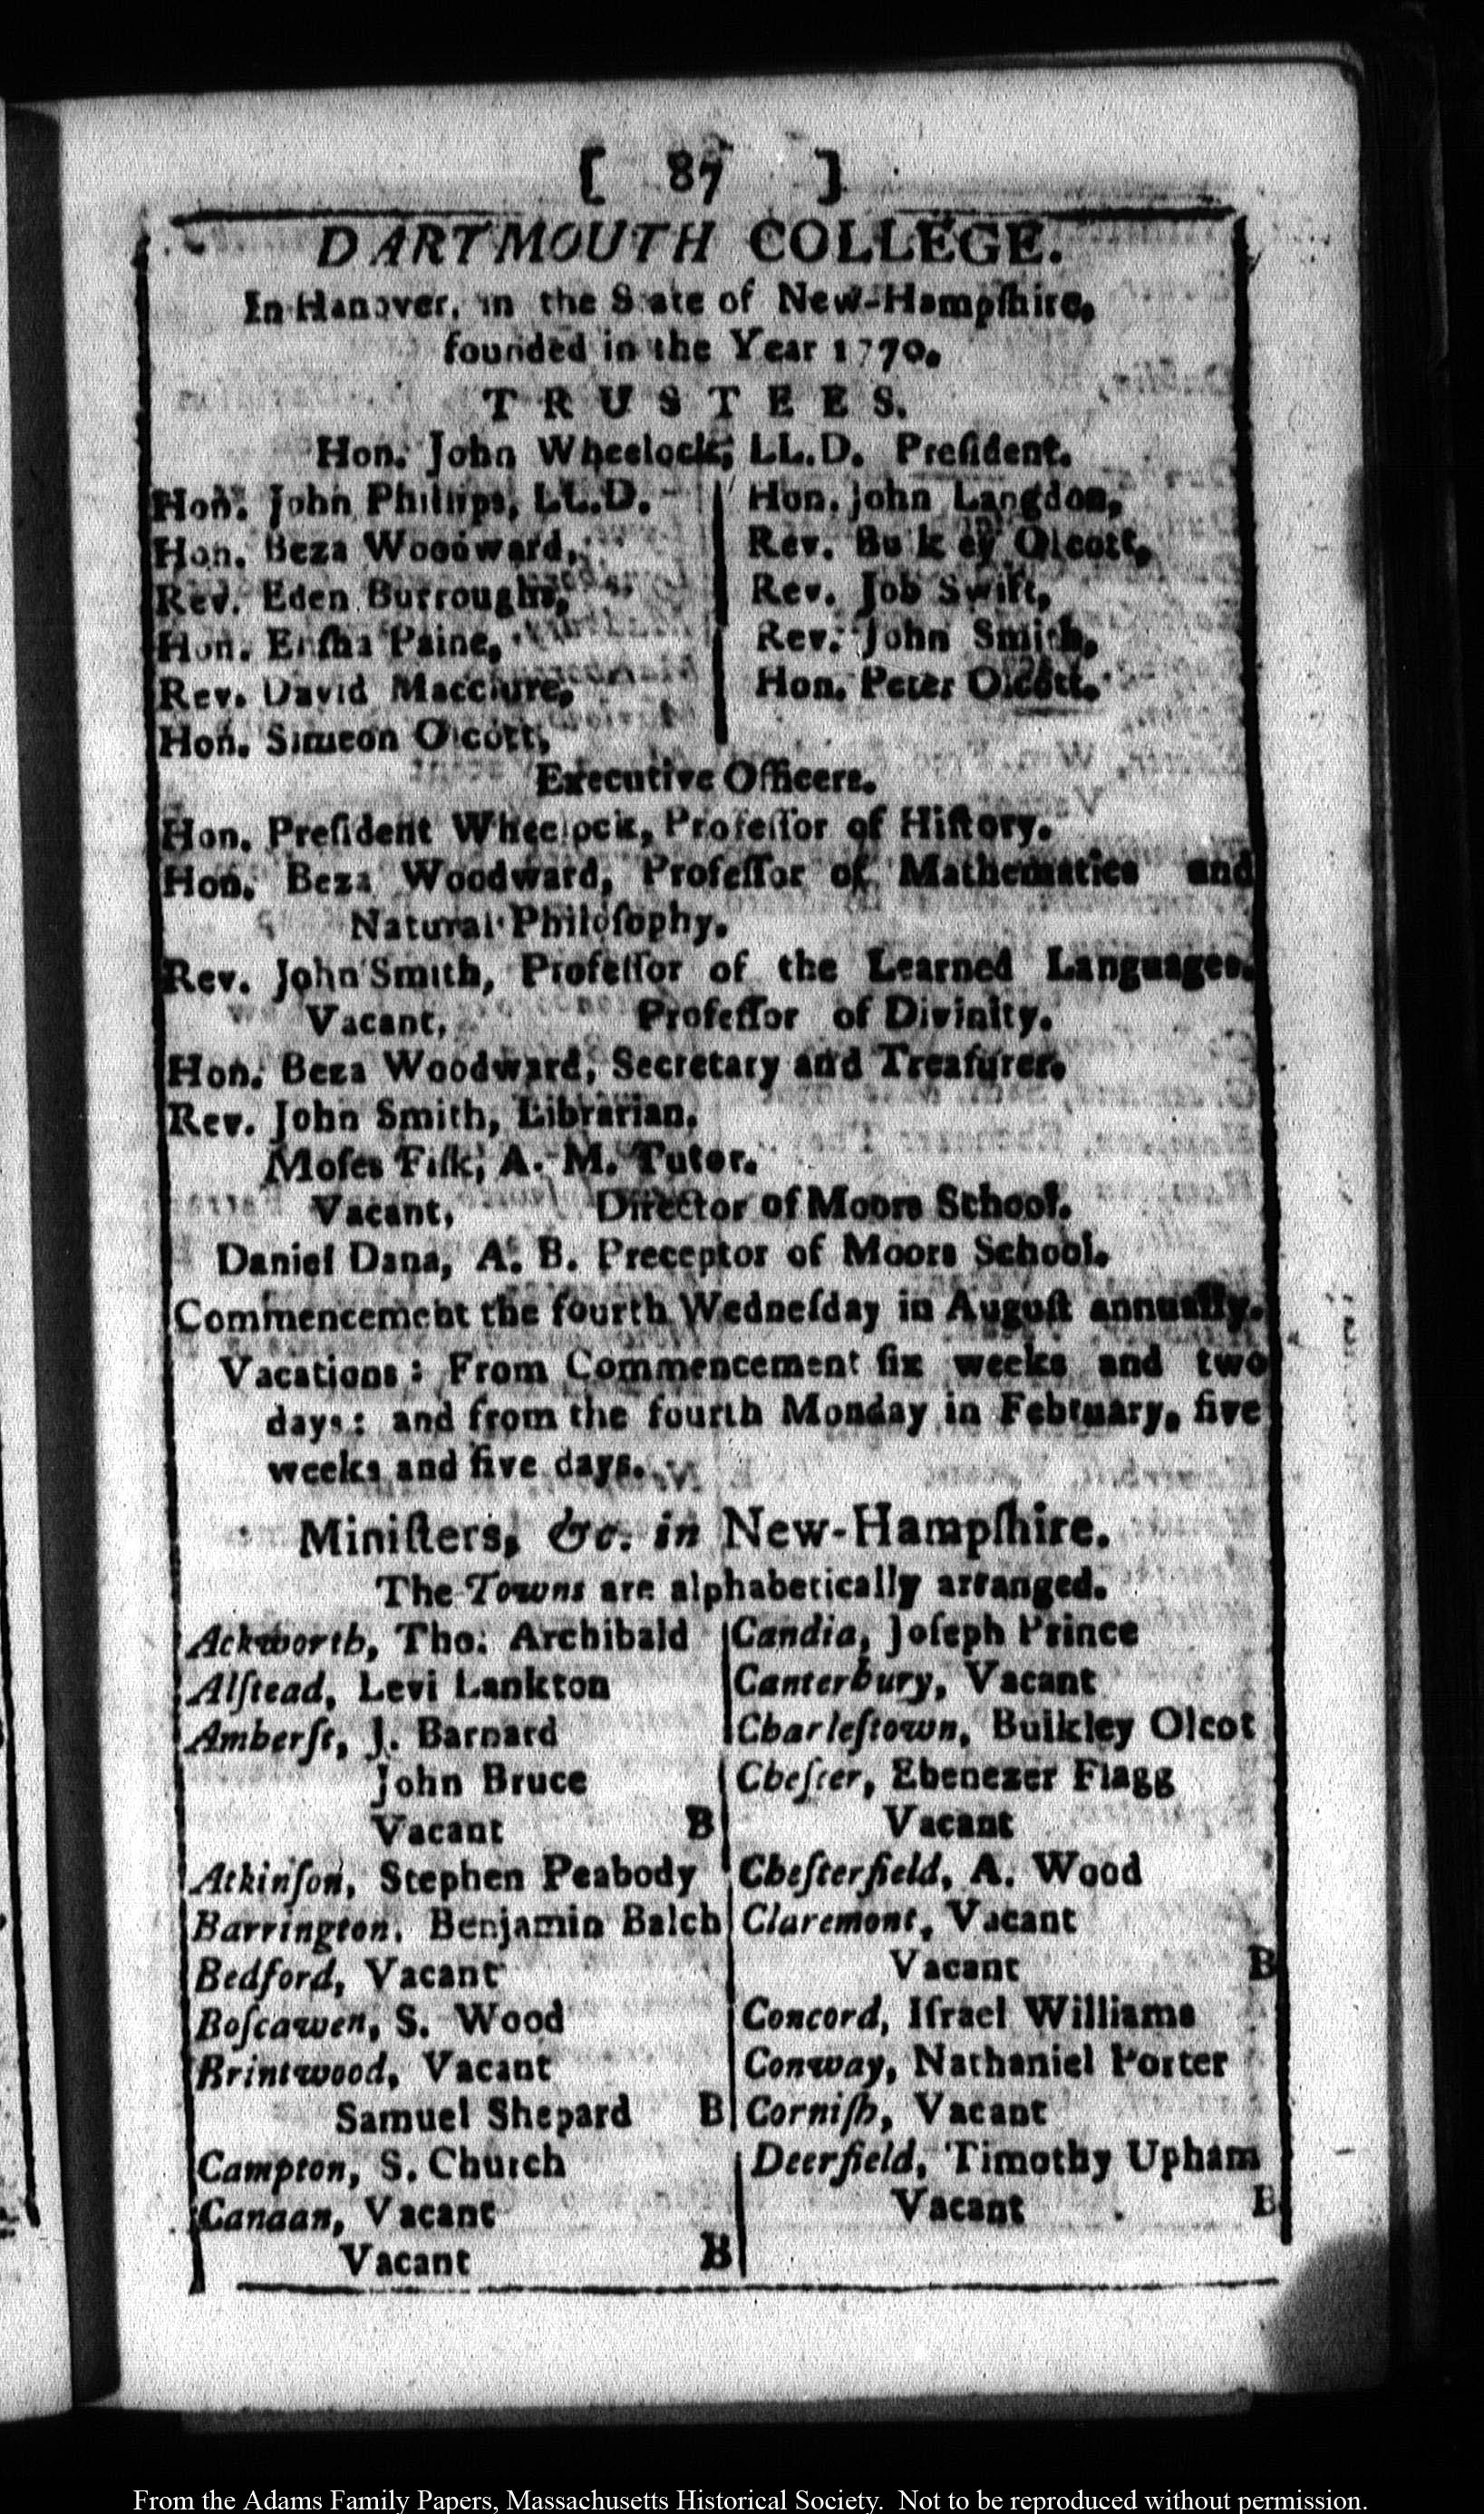 [ 87 ]
DARTMOUTH COLLEGE.
In Hanover, in the State of New-Hampſhire,
founded in the Year 1770.
TRUSTEES.
Hon. John Wheelock, LL.D. Preſident.
Hon. John Phillips, LL.D.
Hon. Beza Woodward,
Rev. Eden Burroughs,
Hon. Eliſha Paine,
Rev. David Macclure,
Hon. Simeon Olcott,
Hon. John Langdon,
Rev. Bulkley Olcott,
Rev. Job Swift,
Rev. John Smith,
Hon. Peter Olcott.
Executive Officers.
Hon. Preſident Wheelock, Profeſſor of Hiſtory.
Hon. Beza Woodward, Profeſſor of Mathematics and
Natural Philoſophy.
Rev. John Smith, Profeſſor of the Learned Languages.
Vacant, Profeſſor of Divinity.
Hon. Beza Woodward, Secretary and Treaſurer.
Rev. John Smith, Librarian.
Moſes Fiſk, A. M. Tutor.
Vacant, Director of Moors School.
Daniel Dana, A. B. Preceptor of Moors School.
Commencement the fourth Wedneſday in Auguſt annually.
Vacations: From Commencement ſix weeks and two
days: and from the fourth Monday in February, five
weeks and five days.
Miniſters, &c. in New-Hampſhire.
The Towns are alphabetically arranged.
Ackworth, Tho. Archibald
Alſtead, Levi Lankton
Amherſt, J. Barnard
John Bruce
Vacant B
Atkinſon, Stephen Peabody
Barrington, Benjamin Balch
Bedford, Vacant
Boſcawen, S. Wood
Brintwood, Vacant
Samuel Shepard B
Campton, S. Church
Canaan, Vacant
Vacant B
Candia, Joſeph Prince
Canterbury, Vacant
Charleſtown, Bulkley Olcot
Cheſter, Ebenezer Flagg
Vacant
Cheſterfield, A. Wood
Claremont, Vacant
Vacant B
Concord, Iſrael Williams
Conway, Nathaniel Porter
Corniſh, Vacant
Deerfield, Timothy Upham
Vacant B
From the Adams Family Papers, Massachusetts Historical Society. Not to be reproduced without permission.